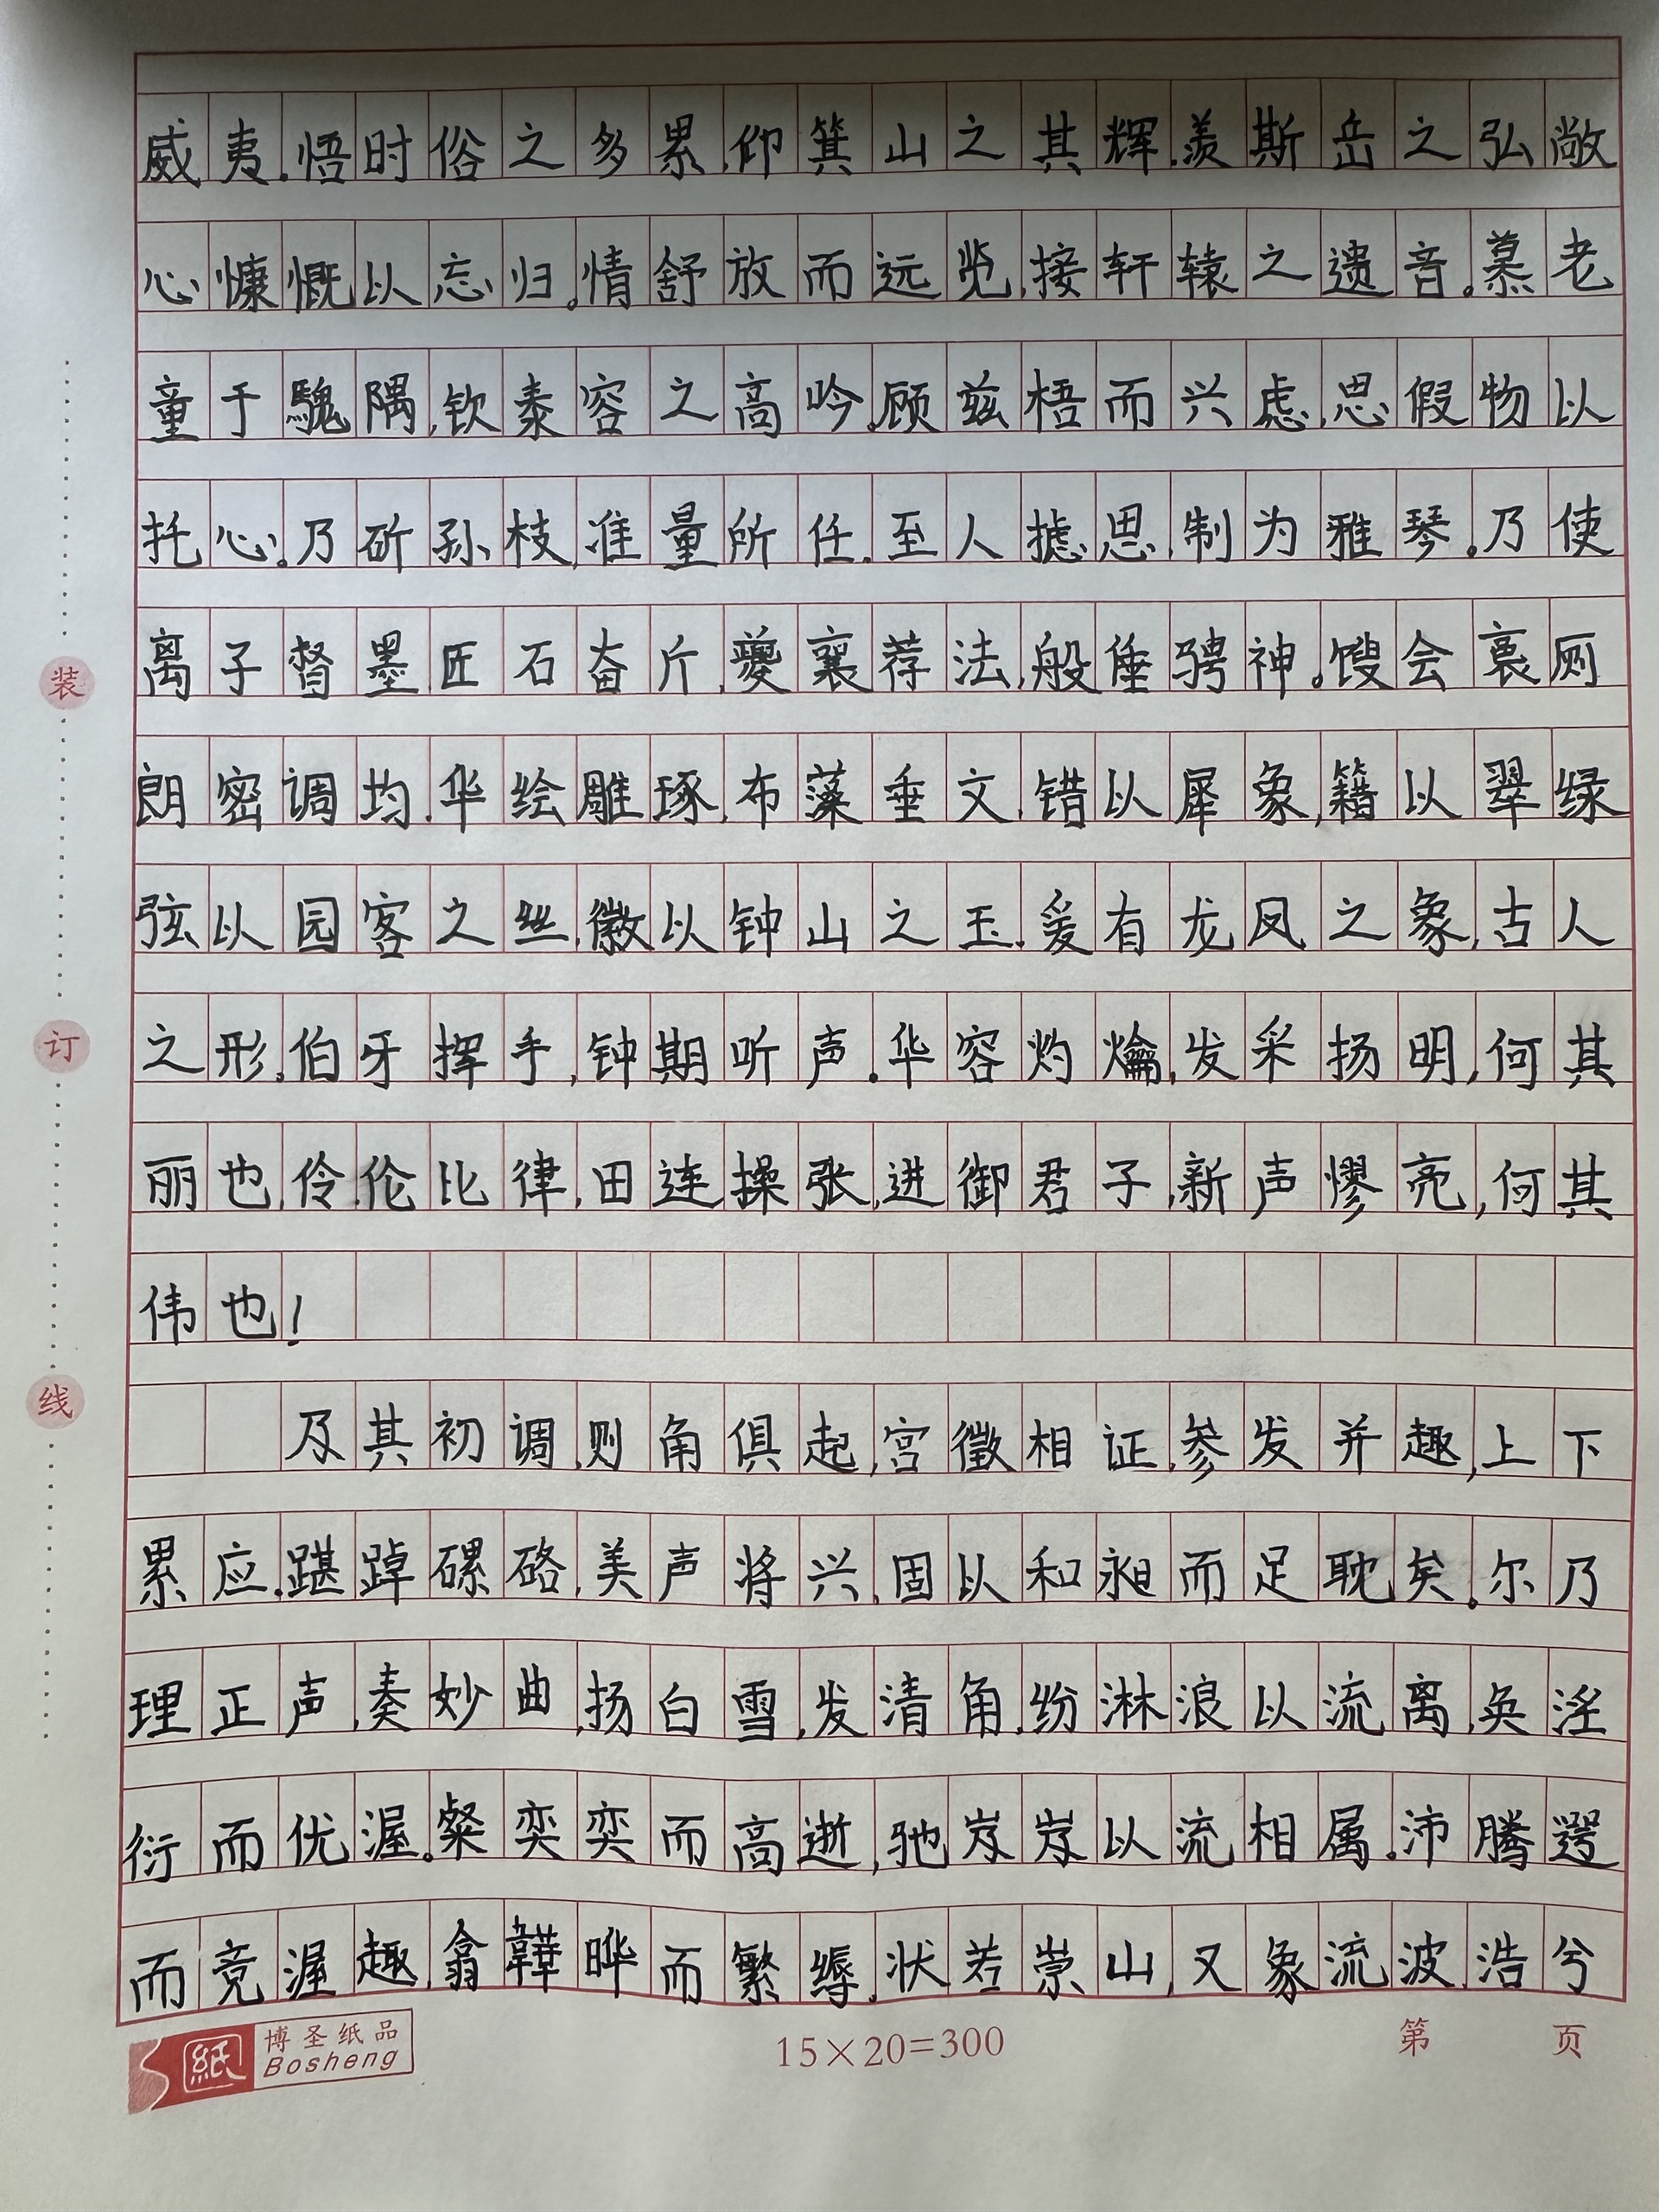 威夷.悟时俗之多累,仰箕山之其辉.羡斯岳之弘敞
心慷慨以忘归。情舒放而远览,接轩辕之遗音。慕老
童于騩隅,钦泰容之高吟.顾兹梧而兴虑,思假物以
托心。乃斫孙枝,准量所任.至人摅思,制为雅琴。乃使
离子督墨,匠石奋斤,夔襄荐法,般倕骋神。馊会裛厕
朗密调均.华绘雕琢,布藻垂文,错以犀象,籍以翠绿
弦以园客之丝,徽以钟山之玉.爰有龙凤之象,古人
之形.伯牙挥手,钟期听声.华容灼爚,发采扬明,何其
丽也,伶伦比律,田连操张,进御君子,新声憀亮,何其
伟也!
及其初调,则角俱起,宫徵相证,参发并趣,上下
累应.踸踔磥硌,美声将兴,固以和昶而足耽矣。尔乃
理正声,奏妙曲,扬白雪,发清角.纷淋浪以流离,奂淫
衍而优渥。粲奕奕而高逝,驰岌岌以流相属.沛腾遌
而竞渥趣,翕韡晔而繁缛.状若崇山,又象流波,浩兮
装
订
线
紙
博圣纸品
Bosheng
15×20=300
第 页